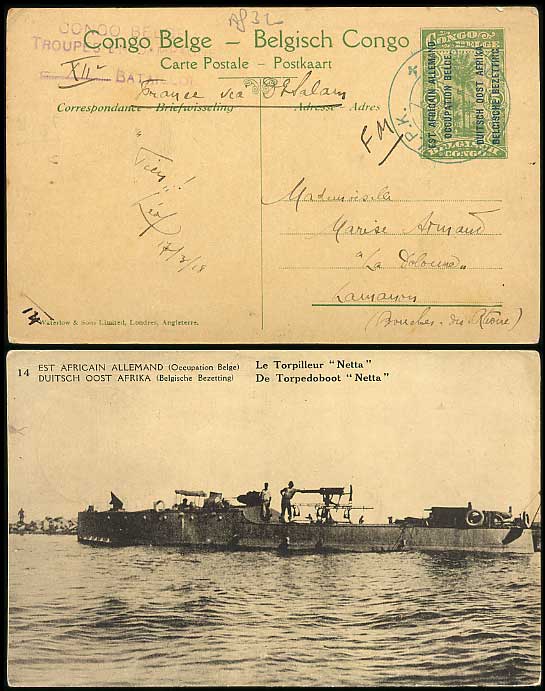 AP32
CONGO BEL
TROUPES
XIIe BATAILLON
Congo Belge – Belgisch Congo
Carte Postale – Postkaart
France via D. Salam
Correspondance – Briefwisseling Adresse – Adres
CONGO BELGE
EST AFRICAIN ALLEMAND
OCCUPATION BELGE
DUITSCH OOST AFRIKA
BELGISCHE BEZETTING
BELGISCH CONGO
P.K.
FM
"
Tiens!
Léo
17/3/18
Mademoiselle
Marise Armand
"La
Lamanon
(Bouches-du-Rhône)
14
Waterlow & Sons Limited, Londres, Angleterre.
14 EST AFRICAIN ALLEMAND (Occupation Belge) Le Torpilleur "Netta"
DUITSCH OOST AFRIKA (Belgische Bezetting) De Torpedoboot "Netta"